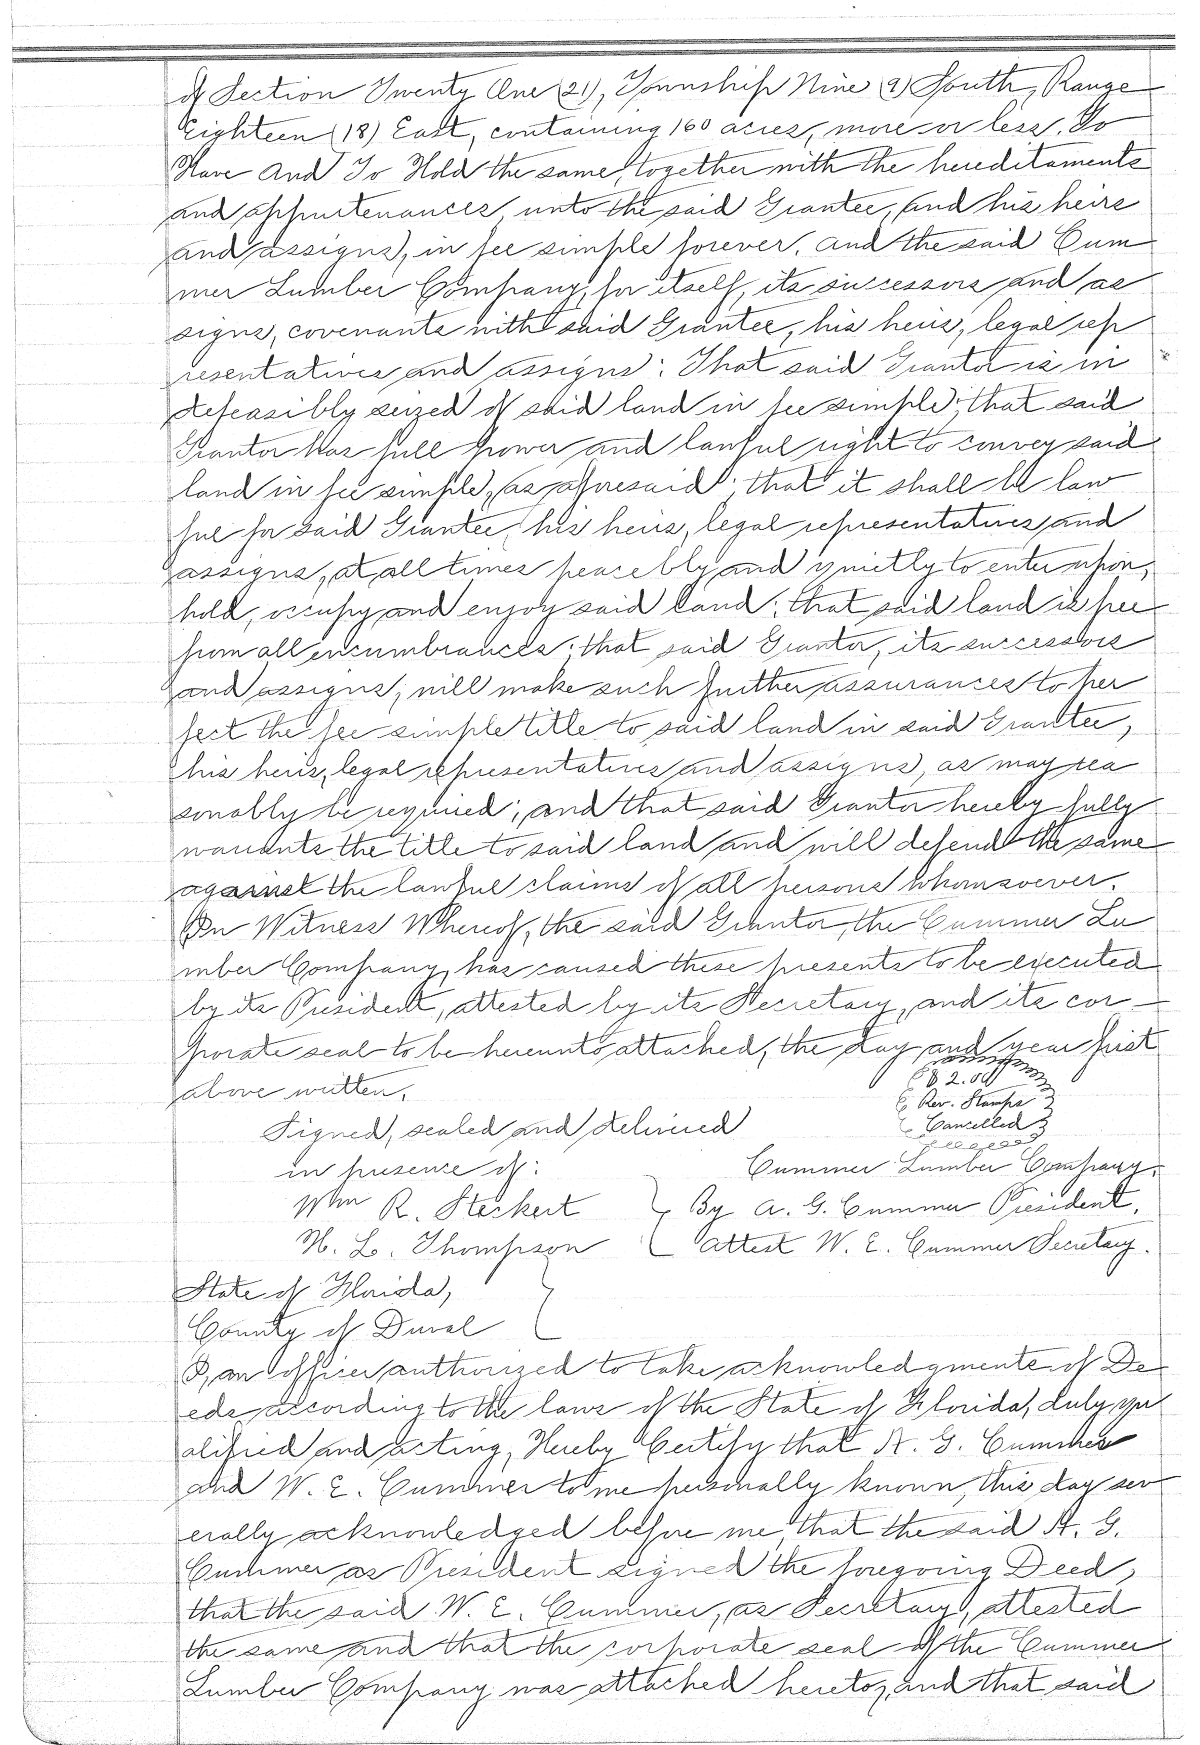 of Section Twenty One (21), Township Nine (9) South, Range
Eighteen (18) East, containing 160 acres, more or less. To
Have And To Hold the same, together with the hereditaments
and appurtenances, unto the said Grantee, and his heirs
and assigns, in fee simple forever. And the said Cum
mer Lumber Company, for itself, its successors and as
signs, covenants with said Grantee, his heirs, legal rep
resentatives and assigns: That said Grantor is in
defeasibly seized of said land in fee simple; that said
Grantor has full power and lawful right to convey said
land in fee simple, as aforesaid; that it shall be law
ful for said Grantee, his heirs, legal representatives and
assigns, at all times peacebly and quietly to enter upon,
hold, occupy and enjoy said land; that said land is free
from all encumbrances; that said Grantor, its successors
and assigns, will make such further assurances to per
fect the fee simple title to said land in said Grantee,
his heirs, legal representatives and assigns, as may rea
sonably be required; and that said Grantor hereby fully
warrants the title to said land and will defend the same
against the lawful claims of all persons whomsoever.
In Witness Whereof, the said Grantor, the Cummer Lu
mber Company, has caused these presents to be executed
by its President, attested by its Secretary, and its cor-
porate seal to be hereunto attached, the day and year first
above written.
$2.00
Rev. Stamps
Cancelled
Signed, sealed and delivered
in presence of: Cummer Lumber Company,
Wm R. Steckert By A. G. Cummer President.
H. L. Thompson Attest W. E. Cummer Secretary.
State of Florida,
County of Duval
I, an officer authorized to take acknowledgments of De
eds, according to the laws of the State of Florida, duly qu
alified and acting, Hereby Certify that A. G. Cummer
and W. E. Cummer to me personally known, this day sev
erally acknowledged before me, that the said A. G.
Cummer as President signed the foregoing Deed,
that the said W. E. Cummer, as Secretary, attested
the same and that the corporate seal of the Cummer
Lumber Company was attached hereto, and that said